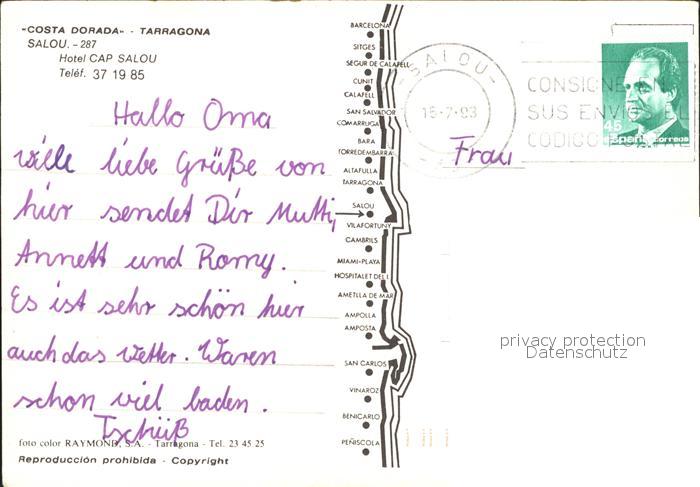 "COSTA DORADA" - TARRAGONA
SALOU. - 287
Hotel CAP SALOU
Teléf. 37 19 85
Hallo Oma
viele liebe Grüße von
hier sendet Dir Mutti,
Annett und Romy.
Es ist sehr schön hier
auch das Wetter. Waren
schon viel baden.
Tschüß
foto color RAYMOND, S.A. - Tarragona - Tel. 23 45 25
Reproducción prohibida - Copyright
BARCELONA
SITGES
SEGUR DE CALAFELL
CUNIT
CALAFELL
SAN SALVADOR
COMARRUGA
BARA
TORREDEMBARRA
ALTAFULLA
TARRAGONA
SALOU
VILAFORTUNY
CAMBRILS
MIAMI-PLAYA
HOSPITALET DEL I.
AMETLLA DE MAR
AMPOLLA
AMPOSTA
SAN CARLOS
VINAROZ
BENICARLO
PEÑISCOLA
-SALOU-
15-7-93
CONSIGNE
SUS ENVIO EL
CODIGO
45
España correos
Frau
privacy protection
Datenschutz